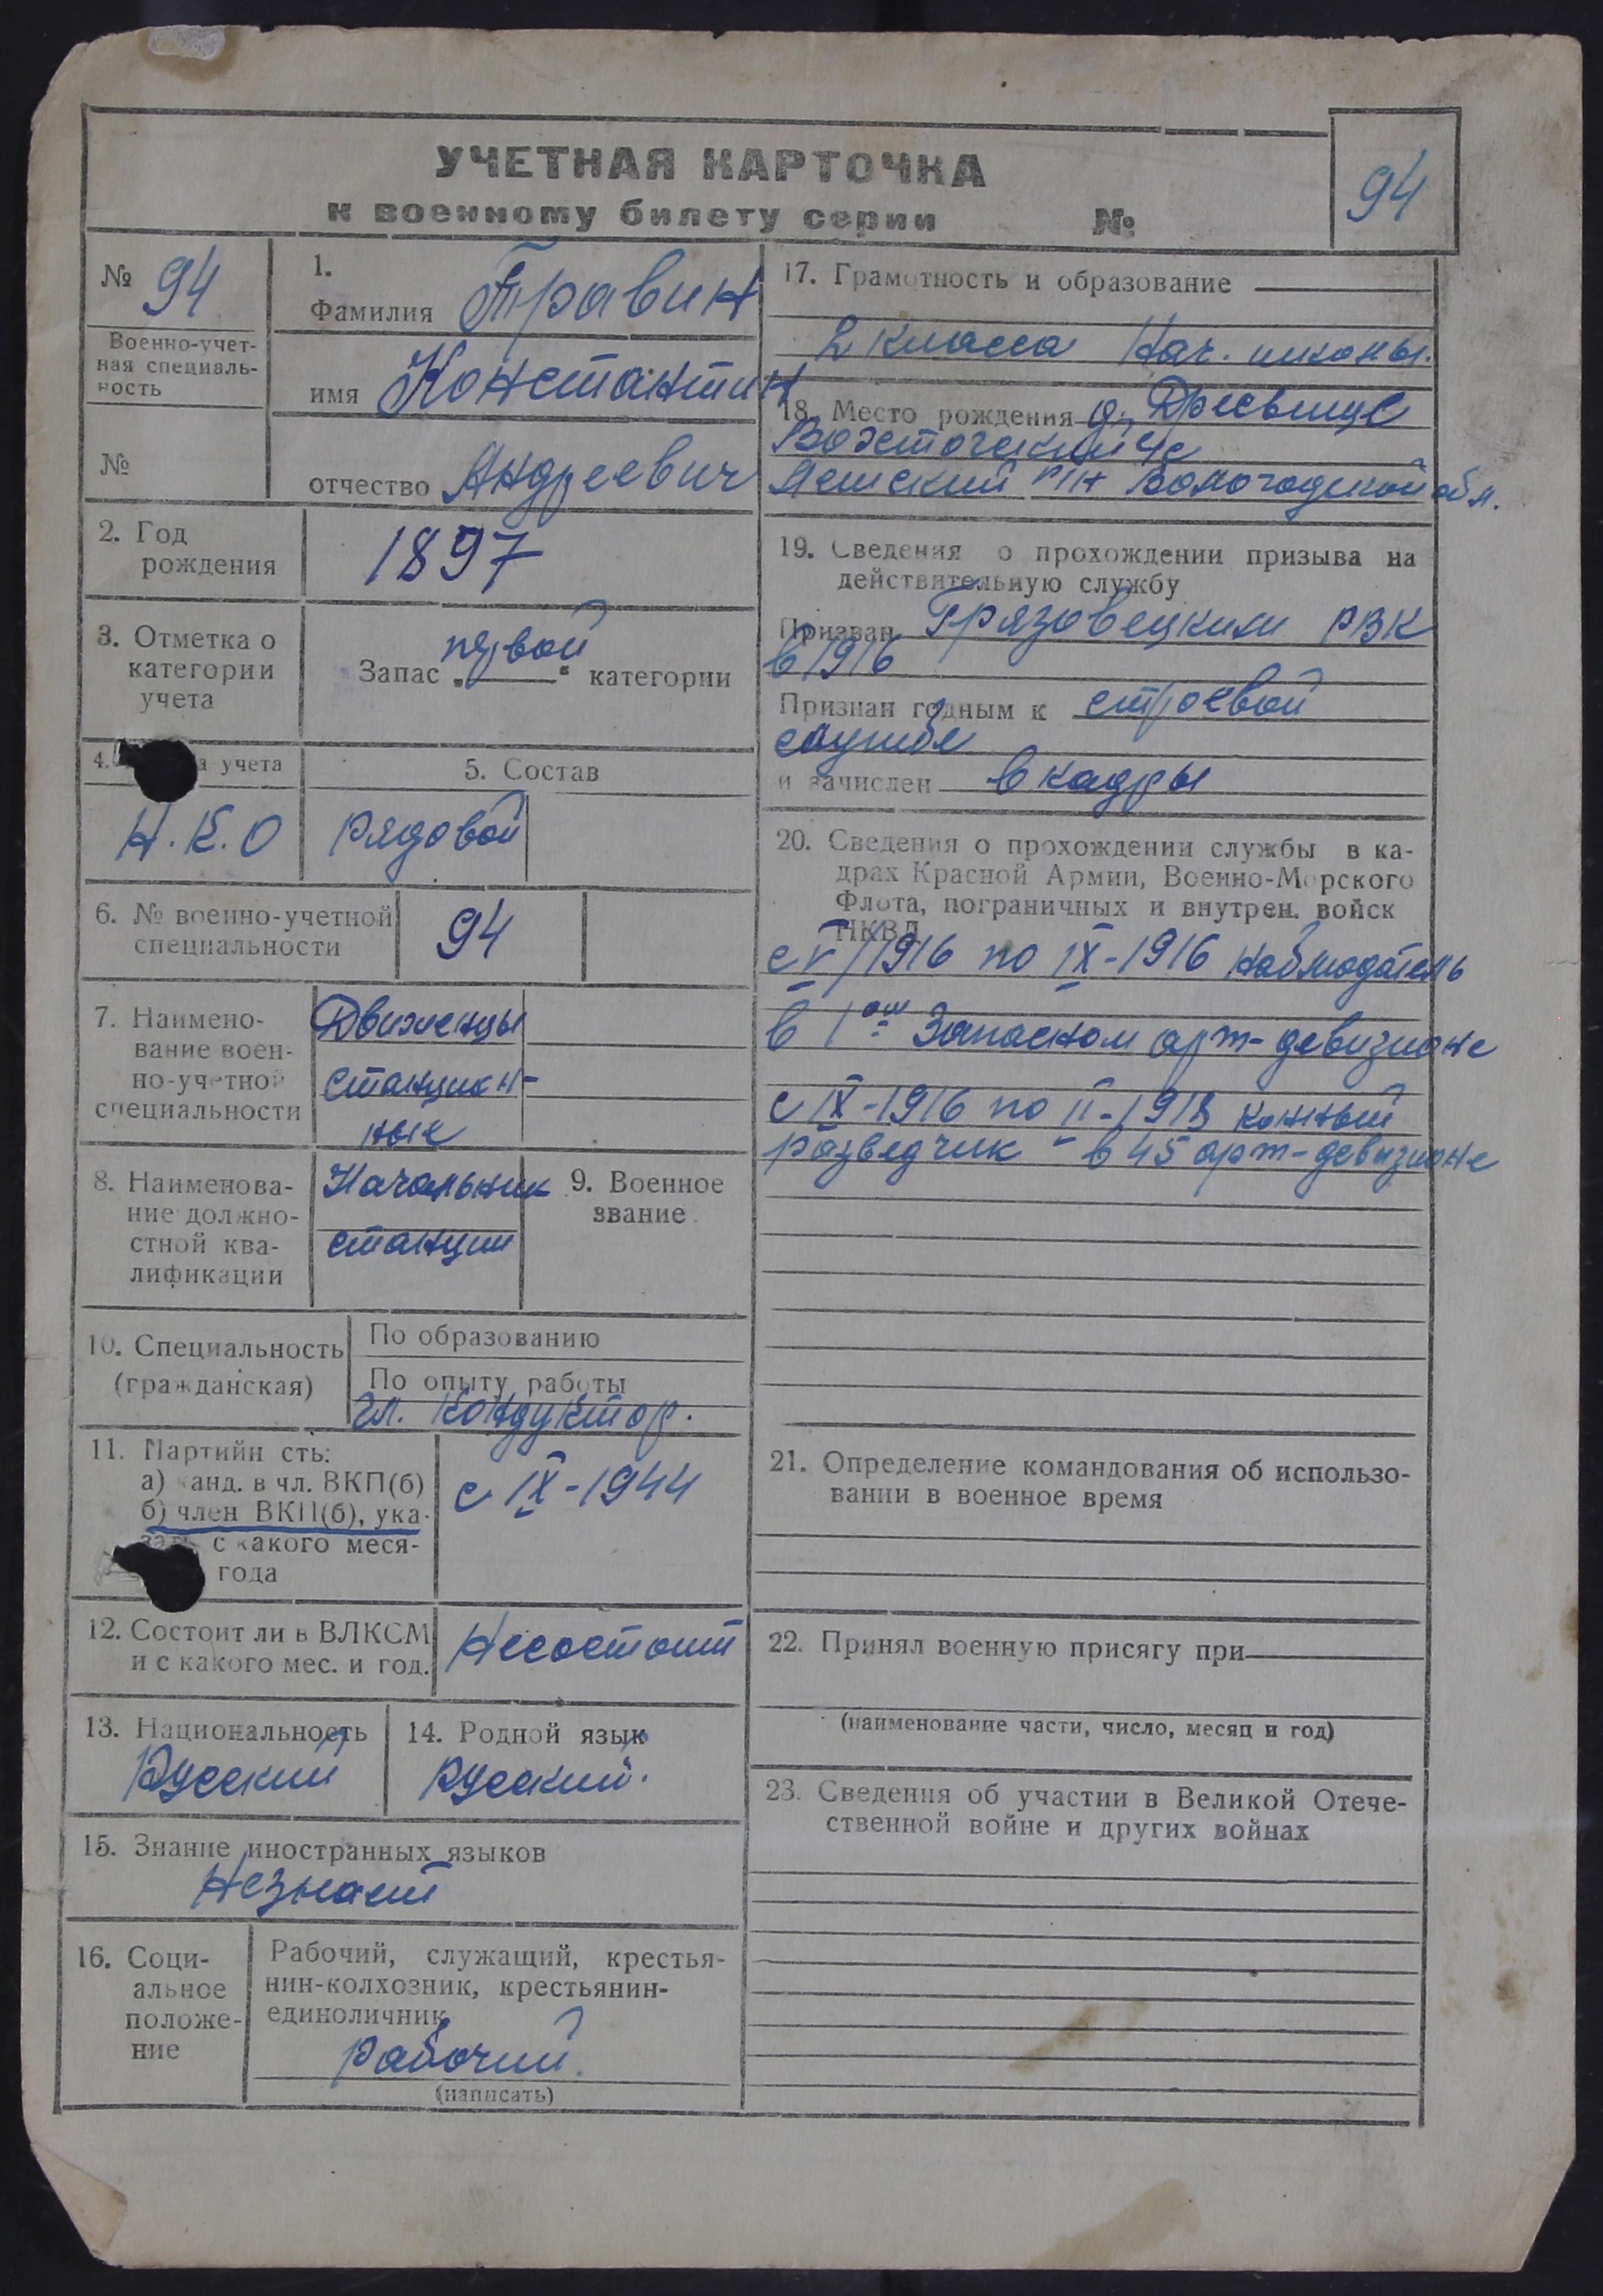 УЧЕТНАЯ КАРТОЧКА
к военному билету серии №
94
№ 94
Военно-учет-
ная специаль-
ность
№
1.
Фамилия Травин
имя Константин
отчество Андреевич
2. Год
рождения
1897
3. Отметка о
категории
учета
Запас „первой“ категории
4. а учета
Н.К.О
5. Состав
рядовой
6. № военно-учетной
специальности
94
7. Наимено-
вание воен-
но-учетной
специальности
Движенцы
станцион-
ные
8. Наименова-
ние должно-
стной ква-
лификации
Начальник
станции
9. Военное
звание
10. Специальность
(гражданская)
По образованию
По опыту работы
гл. кондуктор.
11. Партийн сть:
а) канд. в чл. ВКП(б)
б) член ВКП(б), ука-
зать с какого меся-
года
с IX-1944
12. Состоит ли в ВЛКСМ
и с какого мес. и год.
Несостоит
13. Национальность
Русский
14. Родной язык
Русский.
15. Знание иностранных языков
Незнает
16. Соци-
альное
положе-
ние
Рабочий, служащий, крестья-
нин-колхозник, крестьянин-
единоличник
рабочий.
(написать)
17. Грамотность и образование
2 класса Нач. школы.
18. Место рождения д. Дресвище
р/н Вологодской обл.
19. Сведения о прохождении призыва на
действительную службу
Призван Грязовецким РВК
в 1916
Признан годным к строевой
службе
и зачислен в кадры
20. Сведения о прохождении службы в ка-
драх Красной Армии, Военно-Морского
Флота, пограничных и внутрен. войск
НКВД
с V 1916 по IX-1916 наблюдатель
в 1ом Запасном арт-девизионе
с IX-1916 по II-1918 конный
разведчик - в 45 арт-девизионе
21. Определение командования об использо-
вании в военное время
22. Принял военную присягу при
(наименование части, число, месяц и год)
23. Сведения об участии в Великой Отече-
ственной войне и других войнах